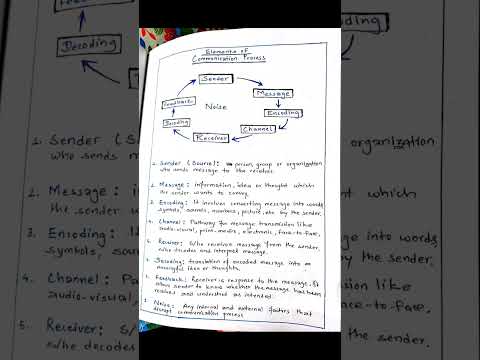 Elements of
Communication Process
Sender
Message
Encoding
Channel
Receiver
Decoding
Feedback
Noise
1. Sender (Source): person, group or organization
who sends message to the receiver.
2. Message: information, idea or thought which
the sender wants to convey.
3. Encoding: It involves converting message into words,
symbols, sounds, numbers, picture, etc by the sender.
4. Channel: Pathway for message transmission like
audio-visual, print-media, electronic, face-to-face.
5. Receiver: S/he receives message from the sender,
s/he decodes and interpret message.
6. Decoding: translation of encoded message into
meaningful idea or thoughts.
7. Feedback: Receiver is response to the message. It
allows sender to know whether the message has been
received and understood as intended.
8. Noise: Any internal and external factors that
disrupt communication process
Decoding
1. Sender (S
who sends
2. Message:
the sender
3. Encoding:
symbols,
4. Channel:
audio-visual,
5. Receiver: S/
s/he decodes
organization
which
words,
by the sender.
like
face-to-face.
the sender.